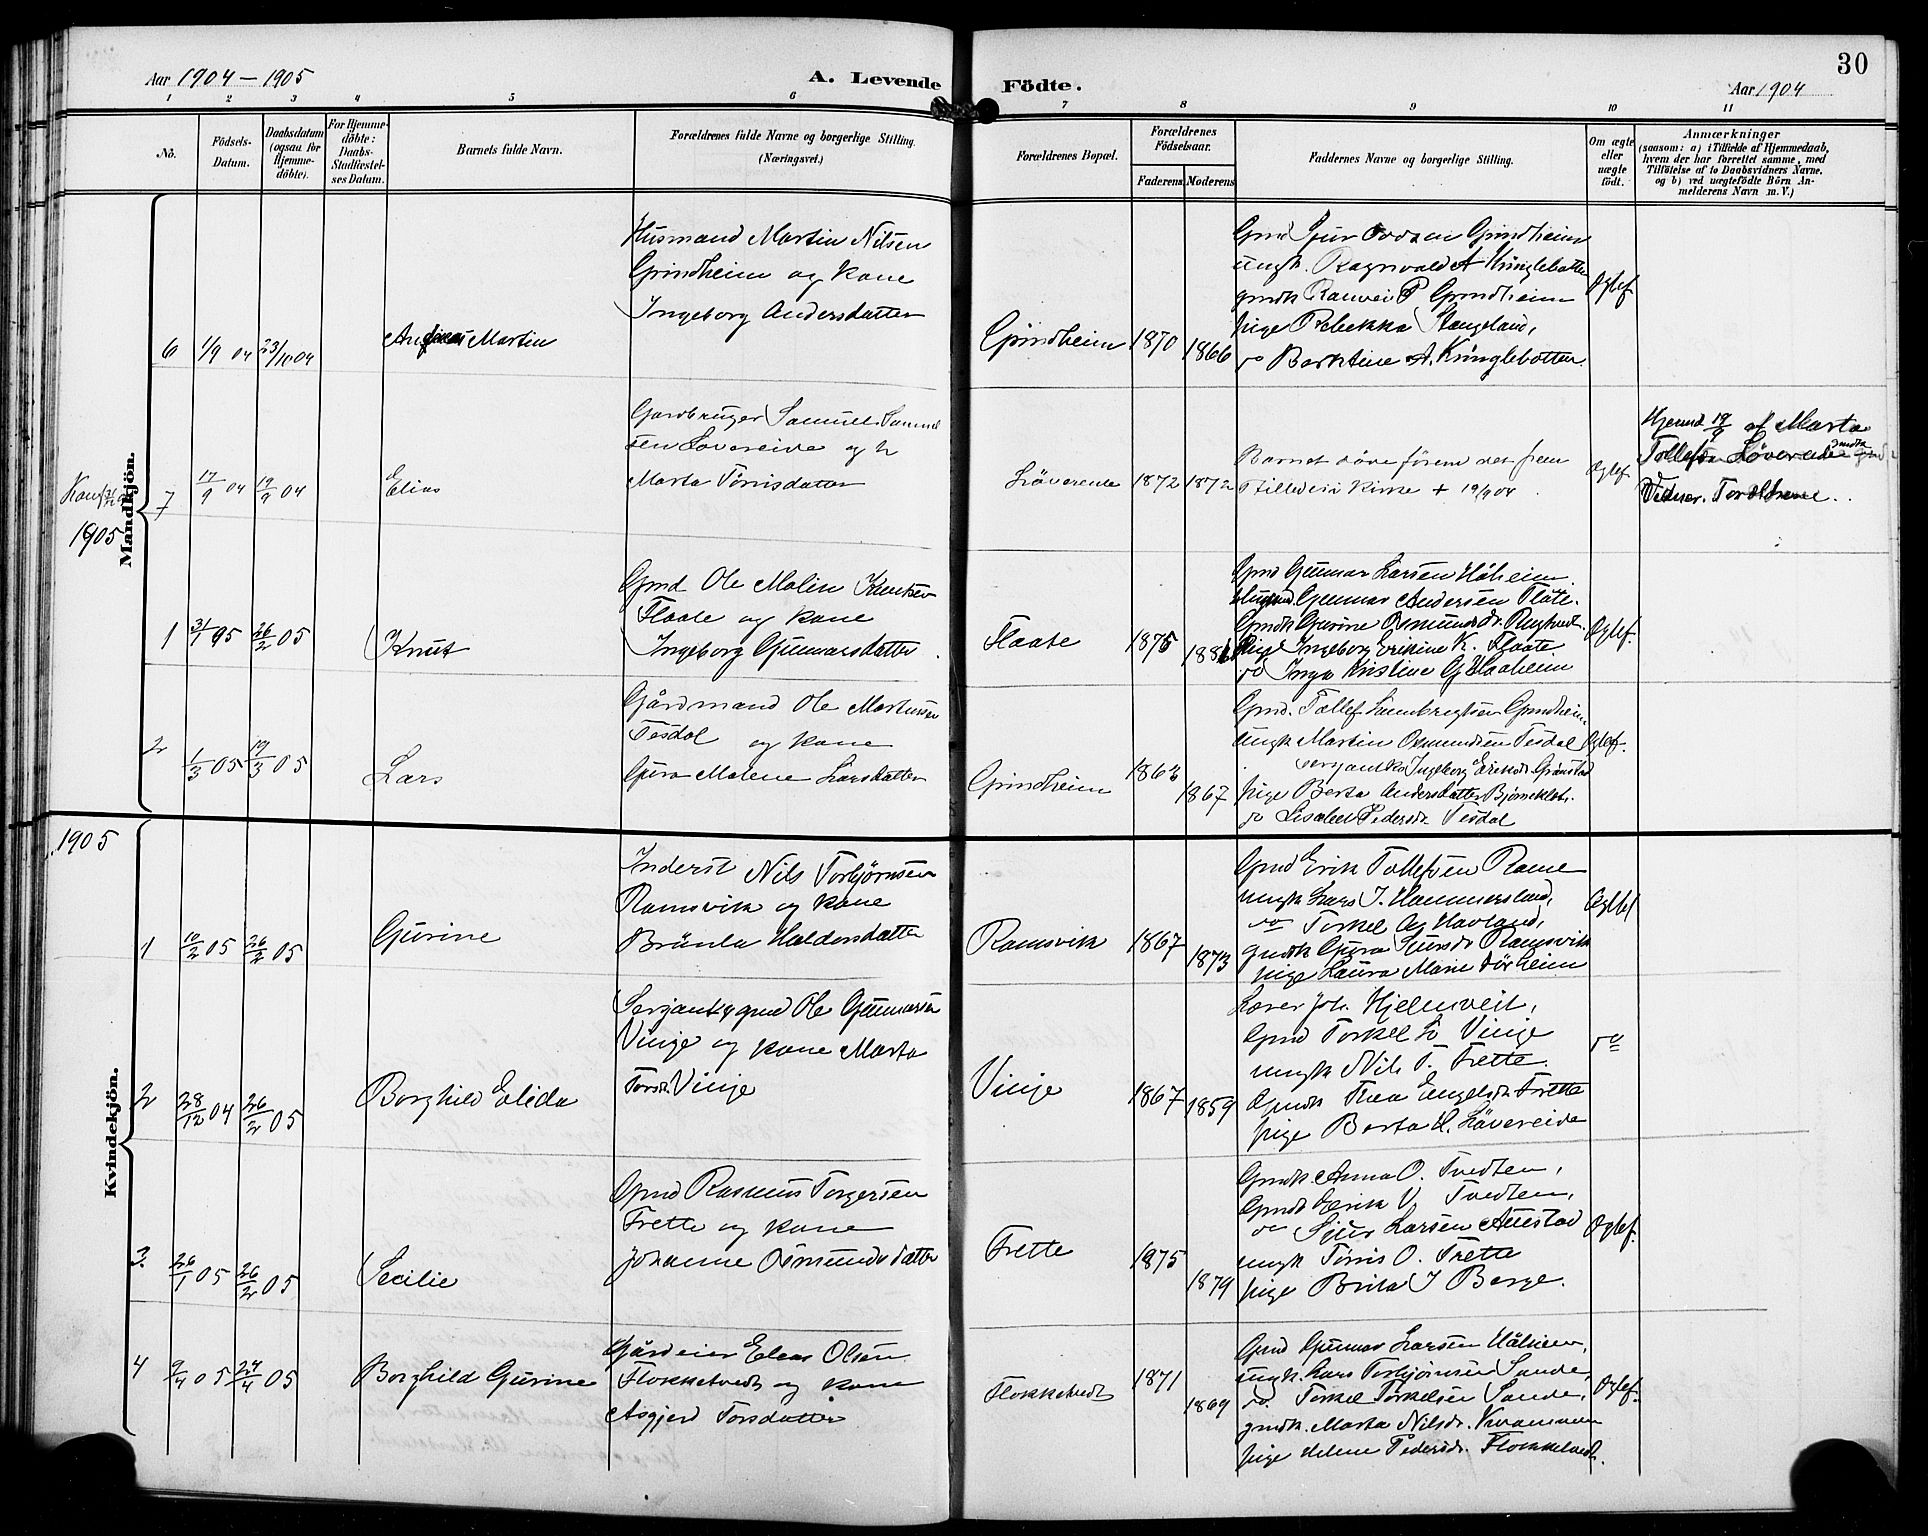 30
Aar 1904 - 1905
A. Levende Födte.
Aar 1904
1 2 3 4 5 6 7 8 9 10 11
No.
Födsels-Datum.
Daabsdatum (ogsaa for Hjemmedöbte).
For Hjemmedöbte: Daabs-Stadfæstelses Datum.
Barnets fulde Navn.
Forældrenes fulde Navne og borgerlige Stilling. (Næringsvei.)
Forældrenes Bopæl.
Forældrenes Födselsaar.
Faderens. Moderens.
Faddernes Navne og borgerlige Stilling.
Om ægte eller uægte födt.
Anmærkninger
(saasom: a) i Tilfælde af Hjemmedaab, hvem der har forrettet samme, med Tilföielse af to Daabsvidners Navne, og b) ved uægtefödte Börn Anmelderens Navn m. V.)
Mandkjön.
6 1/9 04 23/10 04
Martin
Husmand Martin Nilsen
Grindheim og kone
Ingeborg Andersdatter
Grindheim 1870 1866
Gmd Sjur Grindheim
ungk. Ragnvald A Kringlebotten
gmdk Ranvei P Grindheim
pige Rebekka Stangeland,
do A. Kringlebotten.
Ægtef
7 17/9 04 19/9 04
Elias
Gardbruger Samuel Samuel
sen Lövereide og h
Marta Törrisdatter
Lövereide 1872 1872
Barnet döde förend det frem
stilledes i Kirke + 19/9 04
Ægtef
Hjemd 19/9 af Marta
Tollefsdr Lövereide
1905
1 31/1 05 26/2 05
Knut
Gmd Ole Malin Knutsen
Flaate og kone
Ingeborg Gunnarsdatter
Flaate 1875
Gmd Gunnar Larsen Håheim
Gunnar Andersen Flåte.
Gmdk Gurine Osmundsdr.
Pige Ingeborg Erikine K. Flaate
do Inga Kristine G Haaheim
Ægtef.
2 1/3 05 19/3 05
Lars
Gårdmand Ole Martinsen
Tesdal og kone
Gura Malene Larsdatter
Grindheim 1863 1867
Gmd. Tollef Lambregtsen Grindheim
Ungk Martin Osmundsen Tesdal
Ingeborg Eriksdr Grönstad
pige Berta Andersdatter
do Lisabet Pedersdr Tesdal
Ægtef.
1905
Kvindekjön.
1 10/2 05 26/2 05
Gurine
Inderst Nils Torbjörnsen
Ramsvik og kone
Brünla Haldorsdatter
Ramsvik 1867 1873
Gmd Erik Tollefsen Rame
ungk Lars J. Hammersland,
do Torkel Havland,
gmdk Gura Sjursdr Ramsvik
pige Laura Marie Sörheim
Ægtef
2 28/12 04 26/2 05
Borghild Elida
Sergant & gmd Ole Gunnarsen
Vinje og kone Marta
Torsdr Vinje
Vinje 1867 1859
Lærer Joh. Hjelmveit,
Gmd Torkel L Vinje
ungk Nils T. Frette.
Gmdk Thea Engelsdr Frette
pige Berta H. Lövereide
do
3. 26/1 05 26/2 05
Secilie
Gmd Rasmus Torgersen
Frette og kone
Johanne Osmundsdatter
Frette 1875 1879
Gmdk Anna O. Tvedten,
Gmdk Erik V. Tvedten,
do Sjur Larsen Auestad
ungk Törris O. Frette
pige Brita J Berge.
Ægtef.
4 9/4 05 24/4 05
Borghild Gurine
Gårdeier Elias Olsen
Flokketvedt og kone
Asgjerd Torsdatter
Flokketvedt 1871 1869
Gmd Gunnar Larsen Håheim,
ungk. Lars Torbjörnsen Sande,
do. Torkel Torkelsen Sande,
gmdk. Marta Nilsdr. Kvammen
pige Helene Pedersdr. Flokketvedt.
Ægtef.